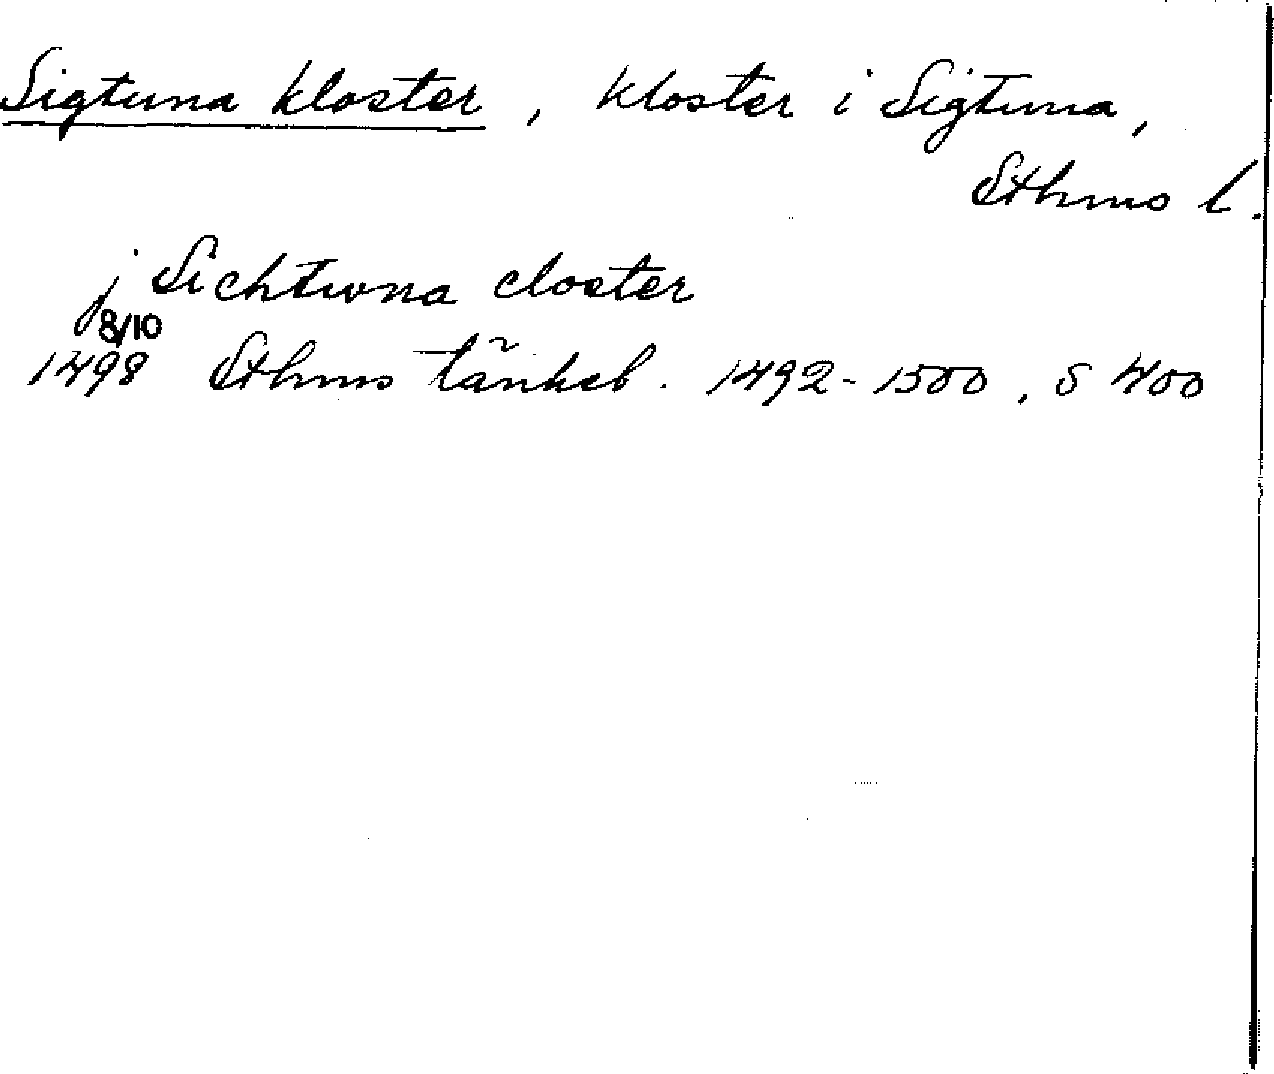 Sigtuna kloster, kloster i Sigtuna,
Sthms l.
j Sichtwna closter
8/10
1498 Sthms tänkeb. 1492-1500, s 400